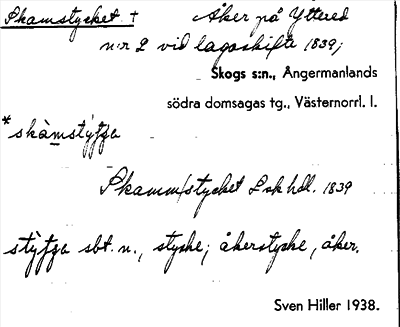 Skamstycket † Åker på Yttered
n:r 2 vid lagaskifte 1839;
Skogs s:n., Ångermanlands
södra domsagas tg., Västernorrl. l.
*skàmstýt̨t̨a
Skamm/stycket Lsk hdl. 1839
stýt̨t̨a sbt. n., stycke; åkerstycke, åker.
Sven Hiller 1938.